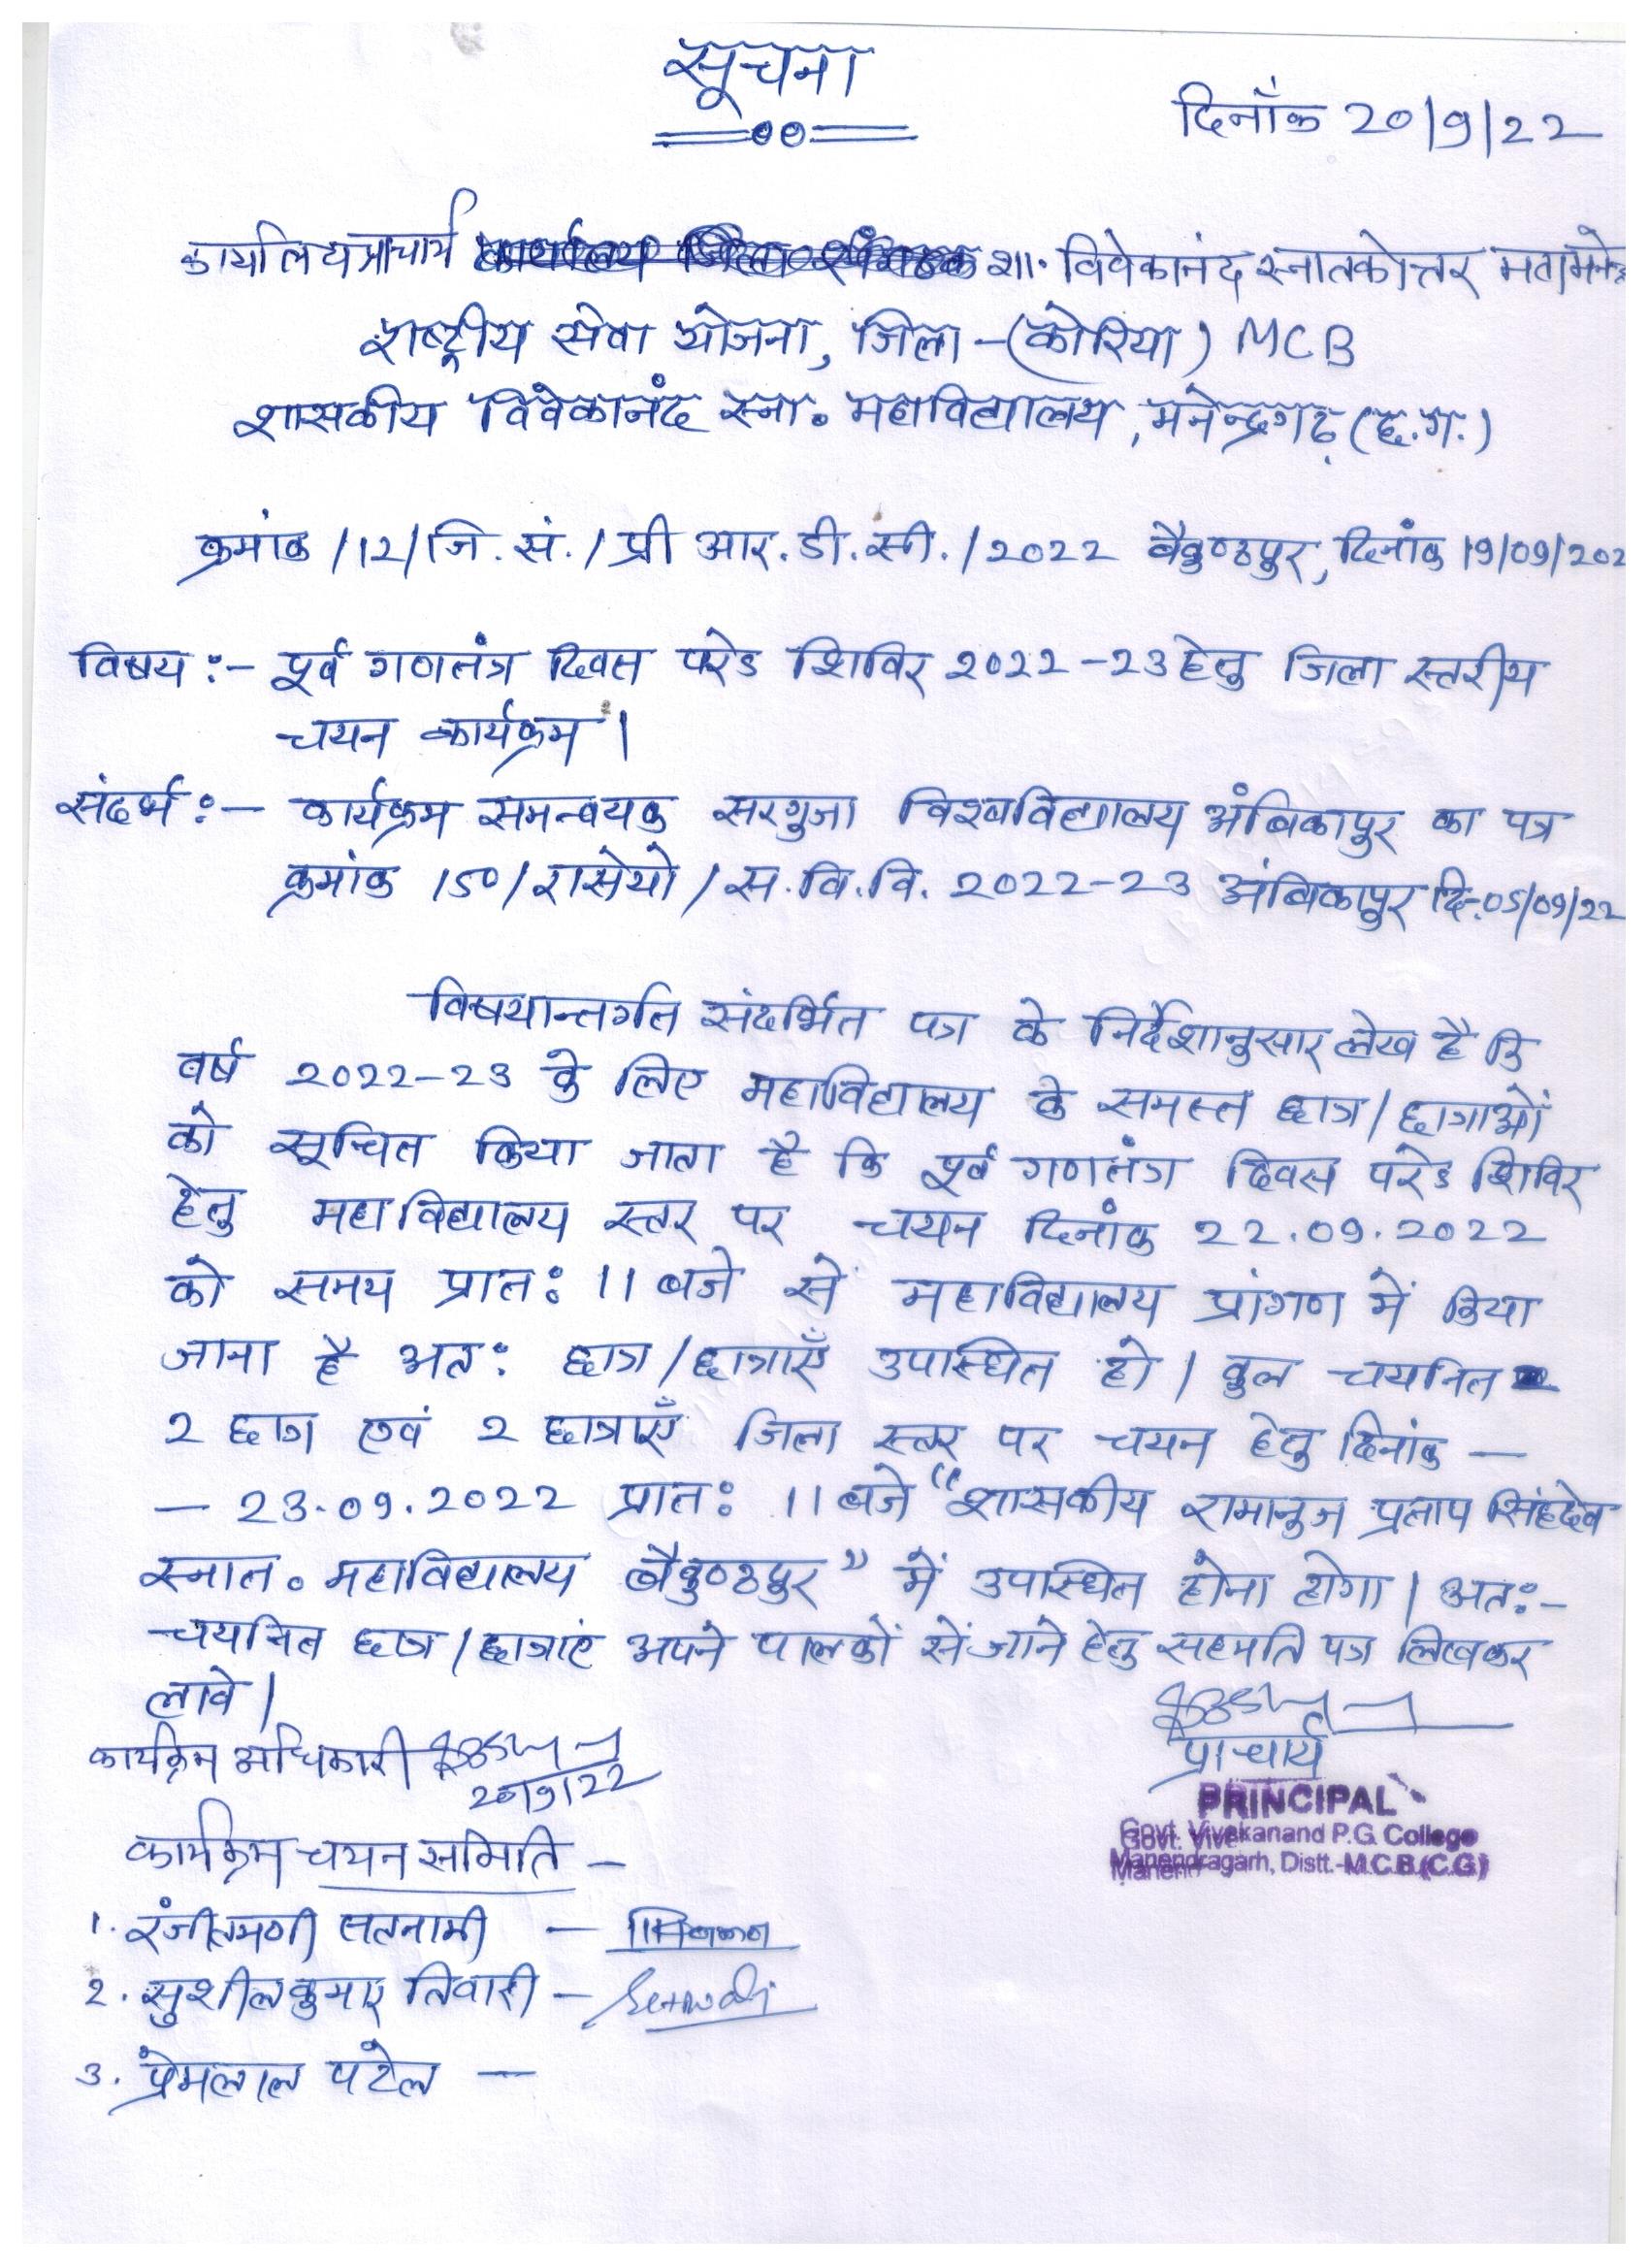 सूचना
दिनाँक 20/9/22
कार्यालय प्राचार्य शा. विवेकानंद स्नातकोत्तर महा
राष्ट्रीय सेवा योजना, जिला - (कोरिया) MCB
शासकीय विवेकानंद स्ना० महाविद्यालय, मनेन्द्रगढ़ (छ.ग.)
क्रमांक /12/जि. सं. / प्री आर. डी. सी. / 2022 बैकुण्ठपुर, दिनांक 19/09/202
विषय :- पूर्व गणतंत्र दिवस परेड शिविर 2022-23 हेतु जिला स्तरीय
चयन कार्यक्रम ।
संदर्भ :- कार्यक्रम समन्वयक सरगुजा विश्वविद्यालय अंबिकापुर का पत्र
क्रमांक 150/रासेयो/स.वि.वि. 2022-23 अंबिकापुर दि. 05/09/22
विषयान्तर्गत संदर्भित पत्र के निर्देशानुसार लेख है कि
वर्ष 2022-23 के लिए महाविद्यालय के समस्त छात्र/छात्राओं
को सूचित किया जाता है कि पूर्व गणतंत्र दिवस परेड शिविर
हेतु महाविद्यालय स्तर पर चयन दिनांक 22.09.2022
को समय प्रात: 11 बजे से महाविद्यालय प्रांगण में किया
जाना है अत: छात्र/छात्राएँ उपस्थित हो। कुल चयनित
2 छात्र एवं 2 छात्राएँ जिला स्तर पर चयन हेतु दिनांक -
- 23.09.2022 प्रात: 11 बजे "शासकीय रामानुज प्रताप सिंहदेव
स्नात० महाविद्यालय बैकुण्ठपुर" में उपस्थित होना होगा। अत:-
चयनित छात्र/छात्राएं अपने पालकों सें जाने हेतु सहमति पत्र लिखकर
लावे।
कार्यक्रम अधिकारी
20/9/22
प्राचार्य
PRINCIPAL
Govt. Vivekanand P.G. College
Manendragarh, Distt.-M.C.B.(C.G)
कार्यक्रम चयन समिति -
1. रंजीतमणी सतनामी -
2. सुशील कुमार तिवारी -
3. प्रेमलाल पटेल -